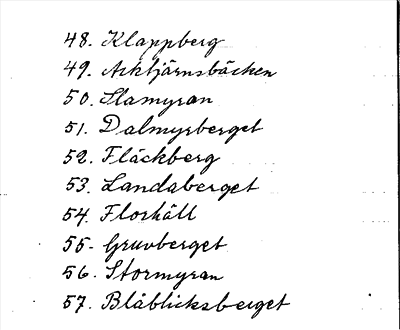 48. Klappberg
49. Arktjärnsbäcken
50. Slamyran
51. Dalmyrberget
52. Fläckberg
53. Landaberget
54. Florhäll
55. Gruvberget
56. Stormyran
57. Blåblicksberget